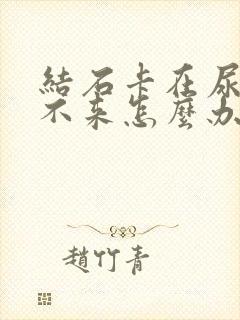 結石卡在尿
不來怎麼办
趙竹青